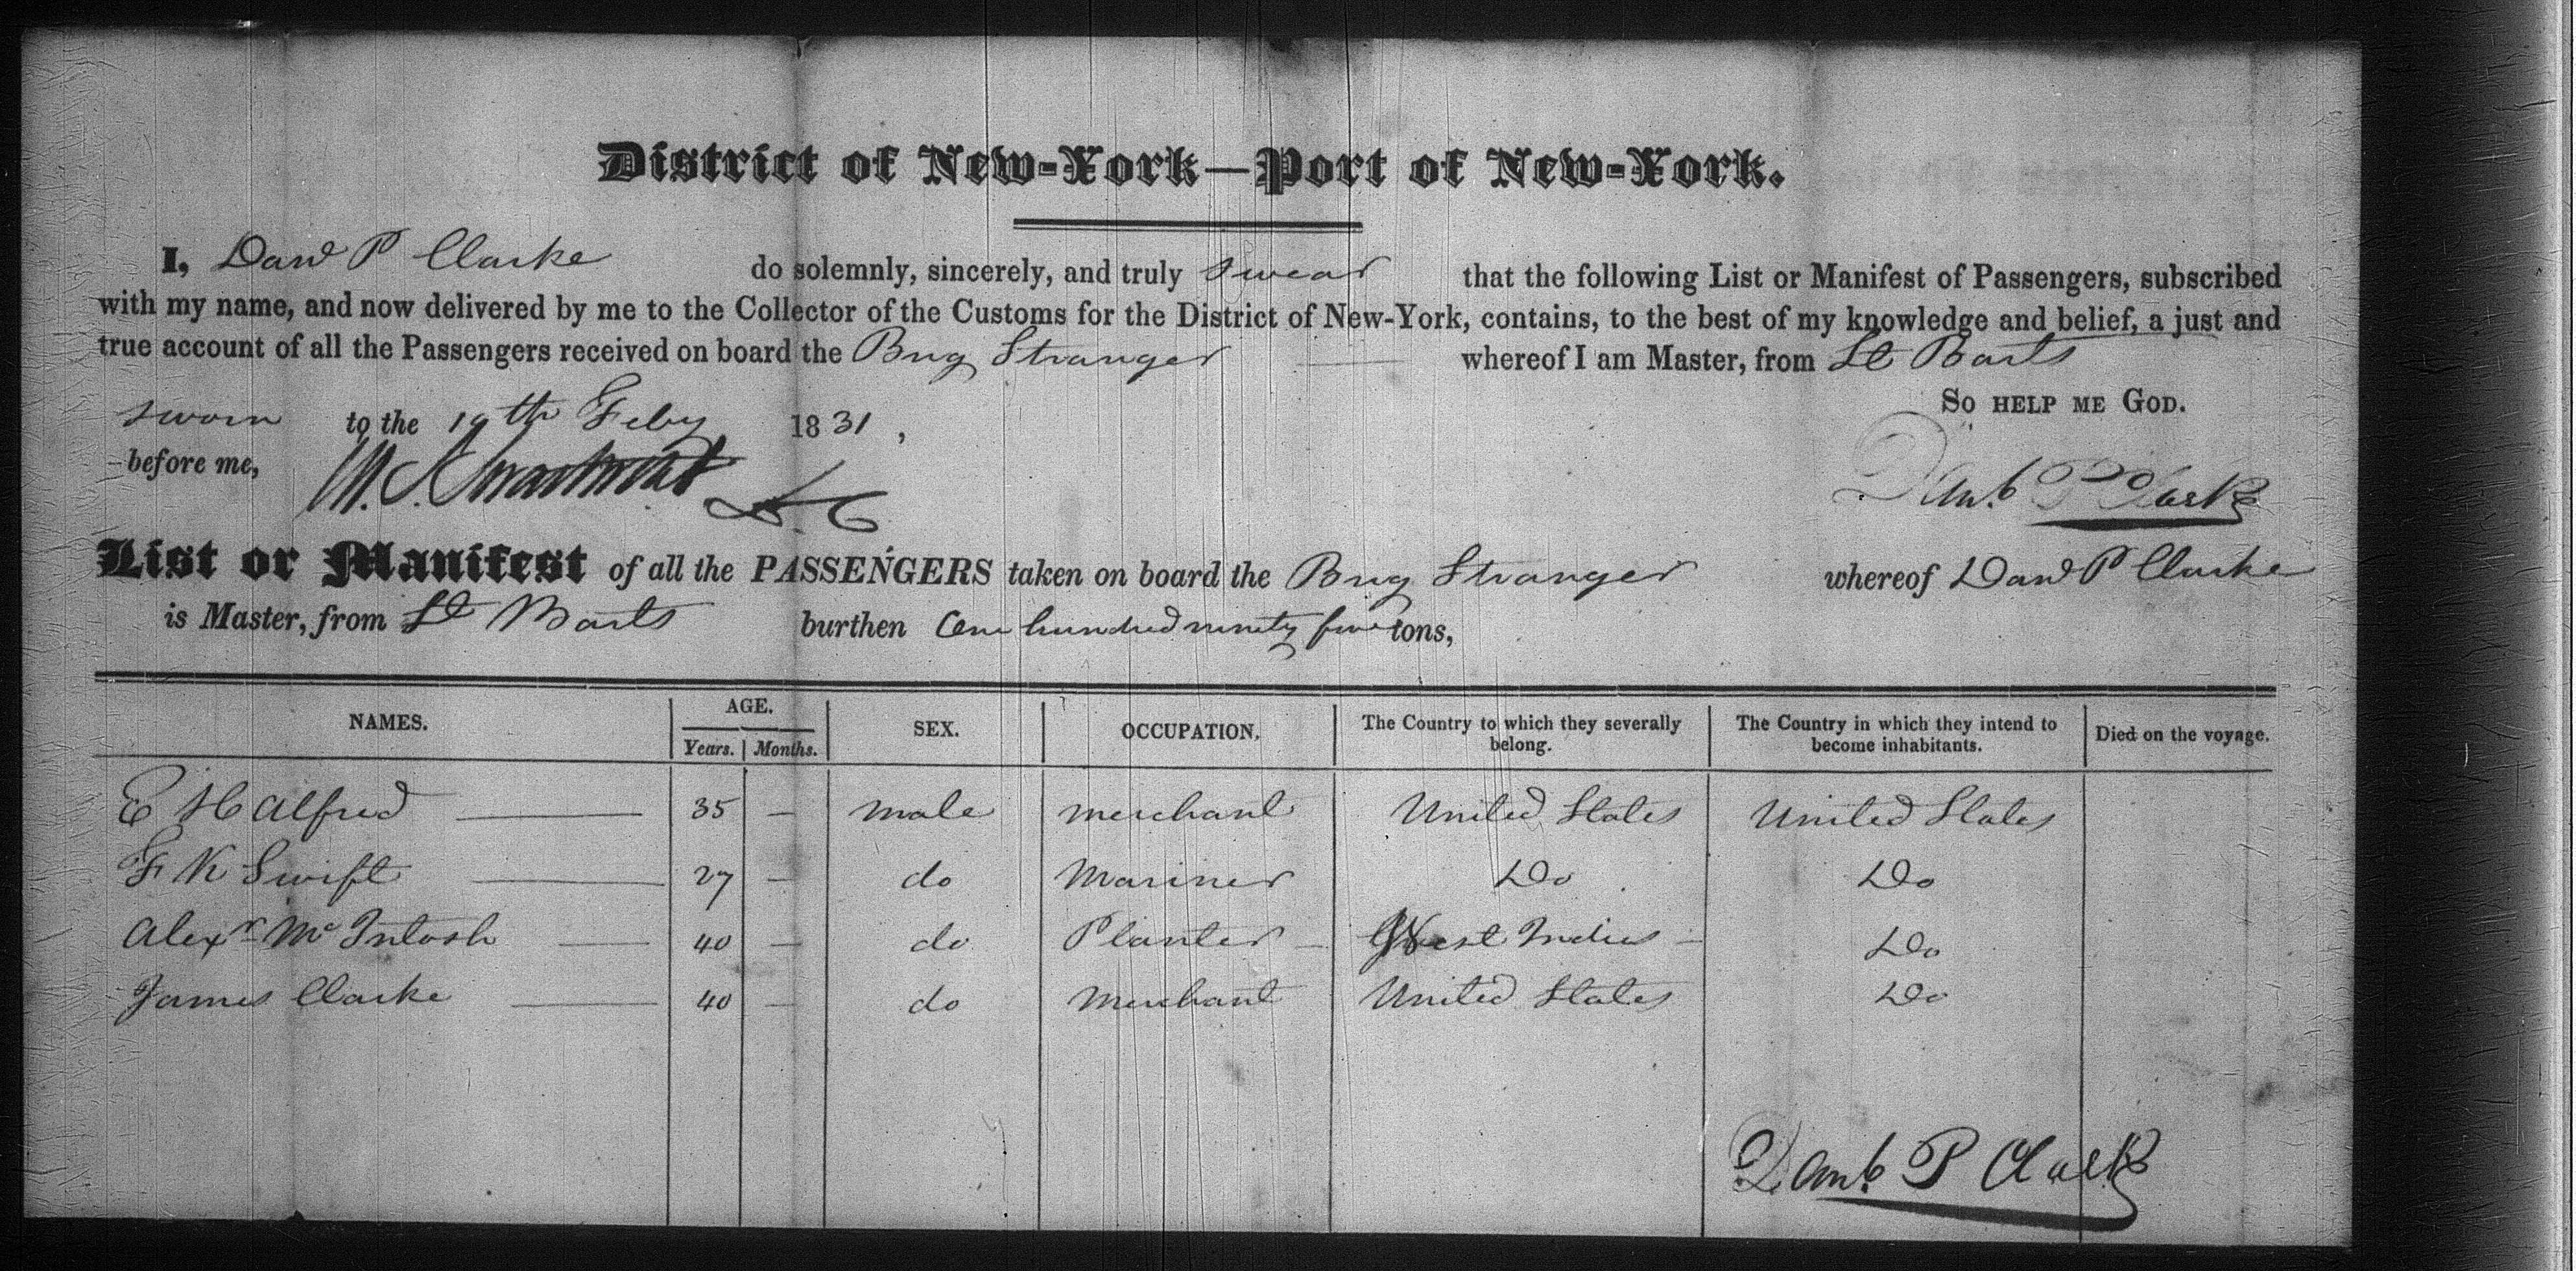 District of New-York—Port of New-York.
I, Danl P Clarke do solemnly, sincerely, and truly swear that the following List or Manifest of Passengers, subscribed
with my name, and now delivered by me to the Collector of the Customs for the District of New-York, contains, to the best of my knowledge and belief, a just and
true account of all the Passengers received on board the Brig Stranger whereof I am Master, from St Barts
So help me God.
sworn to the 19th Feby 1831,
before me,
P Clark
List or Manifest of all the PASSENGERS taken on board the Brig Stranger whereof Danl P Clarke
is Master, from St Barts burthen One hundred ninety five tons,
NAMES. AGE. Years. Months. SEX. OCCUPATION. The Country to which they severally belong. The Country in which they intend to become inhabitants. Died on the voyage.
E H Alfred 35 — male merchant United States United States
F K Swift 27 — do Mariner Do Do
Alexr McIntosh 40 — do Planter West Indies Do
James Clarke 40 — do Merchant United States Do
P Clark